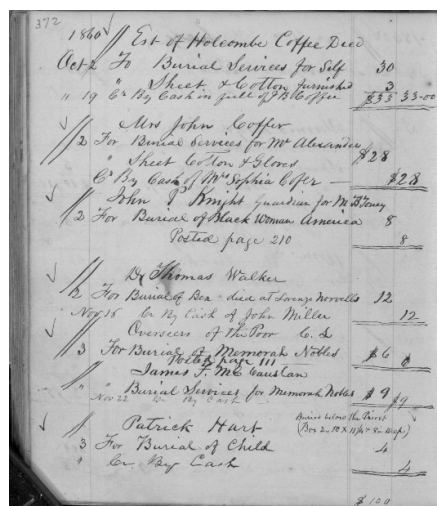 372
1860 // Est of Holcombe Coffee Decd
Oct 2 To Burial Services for Self 30
" Sheet & Cotton furnished 3
" 19 Cr By Cash in full of J B Coffee $33 33-00
// Mrs John Coffer
2 For Burial Services for Mr Alexander
" Sheet Cotton & Gloves $28
Cr By Cash of Mrs Sophia Cofer $28
// John P. Knight guardian for M B Toney
2 For Burial of Black Woman America 8
Posted page 210 8
// Dr Thomas Walker
2 For Burial of Ben died at Lorenzo Norvells 12
Nov 16 Cr By Cash of John Miller 12
// Overseers of the Poor C. L
3 For Burial of Memorah Nobles $6 6
Posted page 111
// James F. McCaustan
" Burial Services for Memorah Nobles $9 $9
Nov 22 Cr By Cash
// Patrick Hart
Buried below the Priest
(Box 2.10 X 11¼ 8 in deep)
3 For Burial of Child 4
" Cr By Cash 4
$100